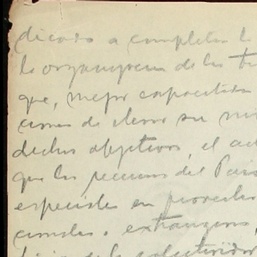 dicado a completar l
la organizacion de los tr
que, mejor capacitada
ciones de llenar su mi
dichos objetivos, el ac
que los recursos del Pais
especiales en provecho
cionales o extranjeros,
de la colectividad